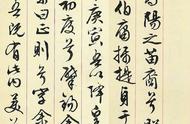 高陽之苗裔兮朕
伯庸攝提貞于
庚寅吾以降皇
初度兮肇錫余
余曰正則兮字余
吾既有此内美